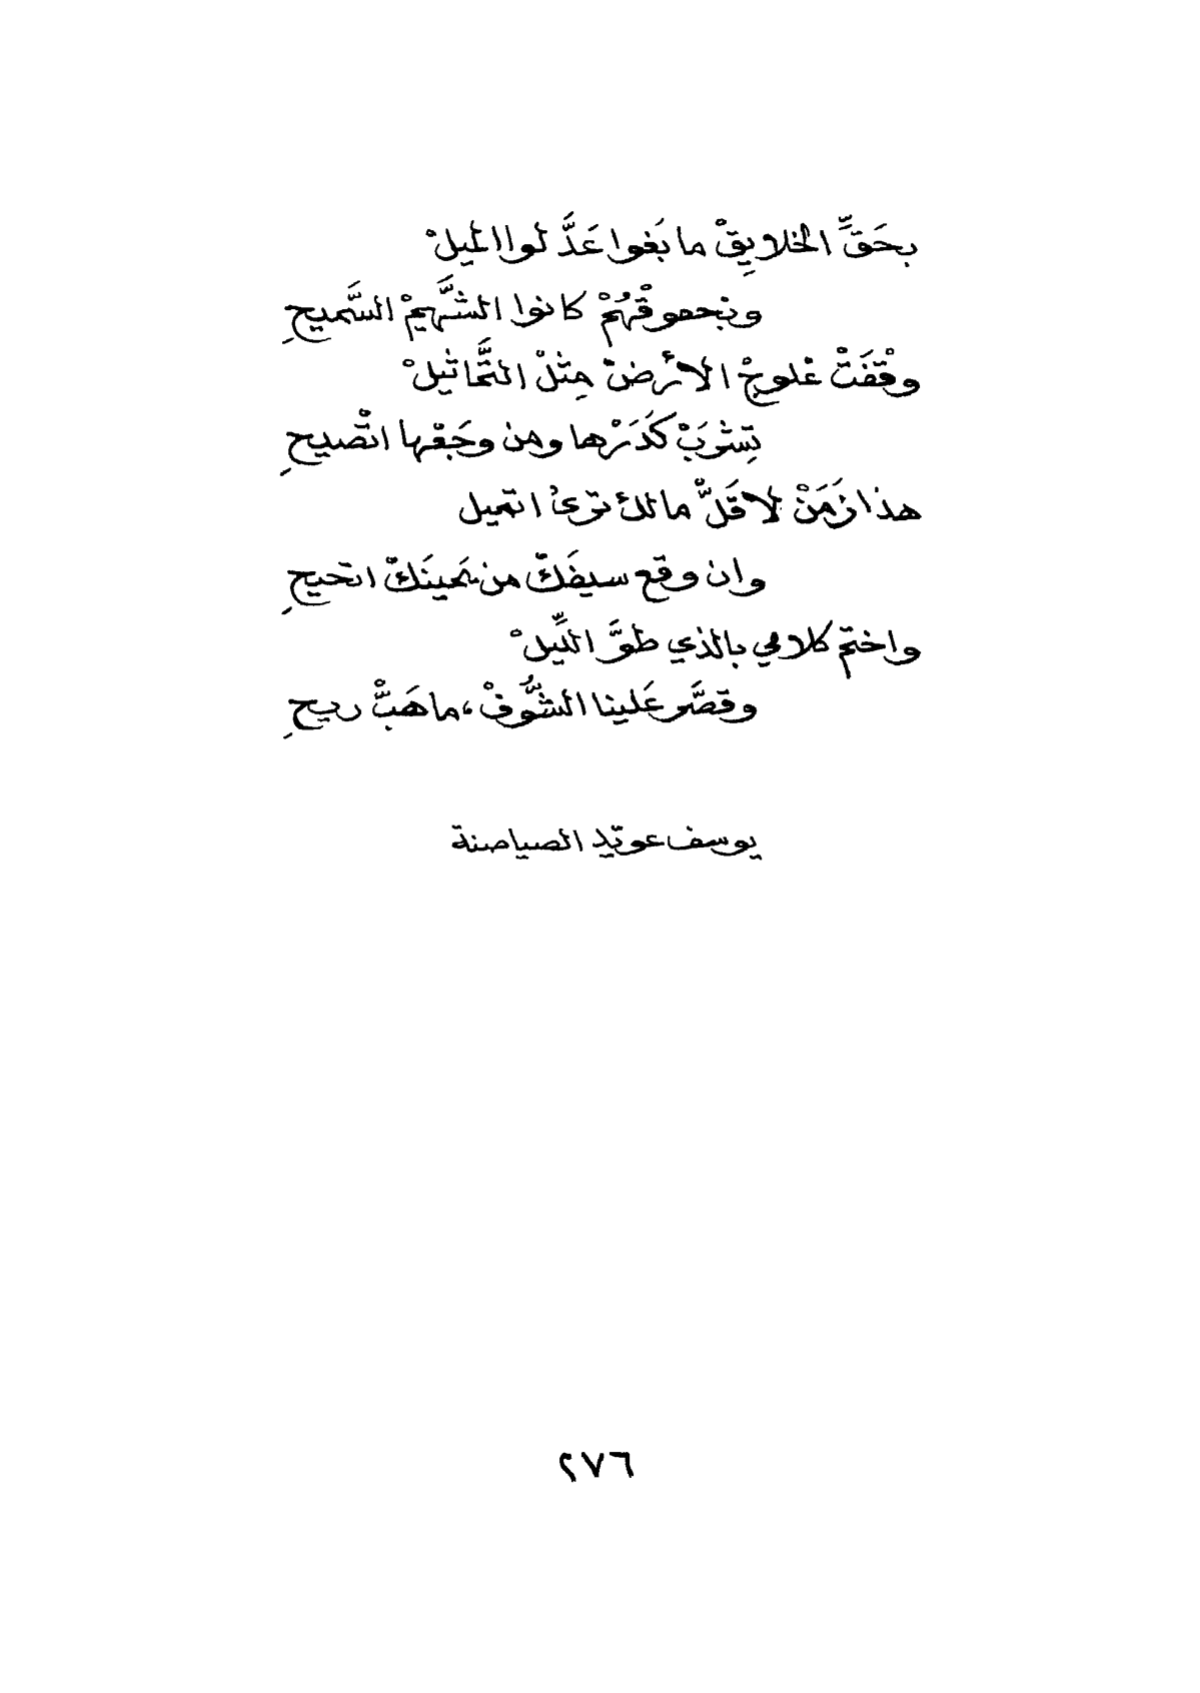 بحَقِّ الخلايِقْ ما بَغوا عَدَّ لوا الميلْ
وبحقوقْهُمْ كانوا الشَّهيمْ السَّميحِ
وقْفَتْ علوجْ الأرضْ مِثلْ التَّماثيلْ
تِشْرَبْ كَدَرْها ومن وجَعْها اتْصيحِ
هذا زمَنْ لا قَلّْ مالك ترىْ اتميل
وان وقع سيفَكْ من يَمينَكْ اتحيحِ
واختم كلامي بالذي طوَّ اللِّيلْ
وقصَّر عَلينا الشُّوفْ، ما هَبّْ ريحِ
يوسف عويّد الصياصنة
٢٧٦